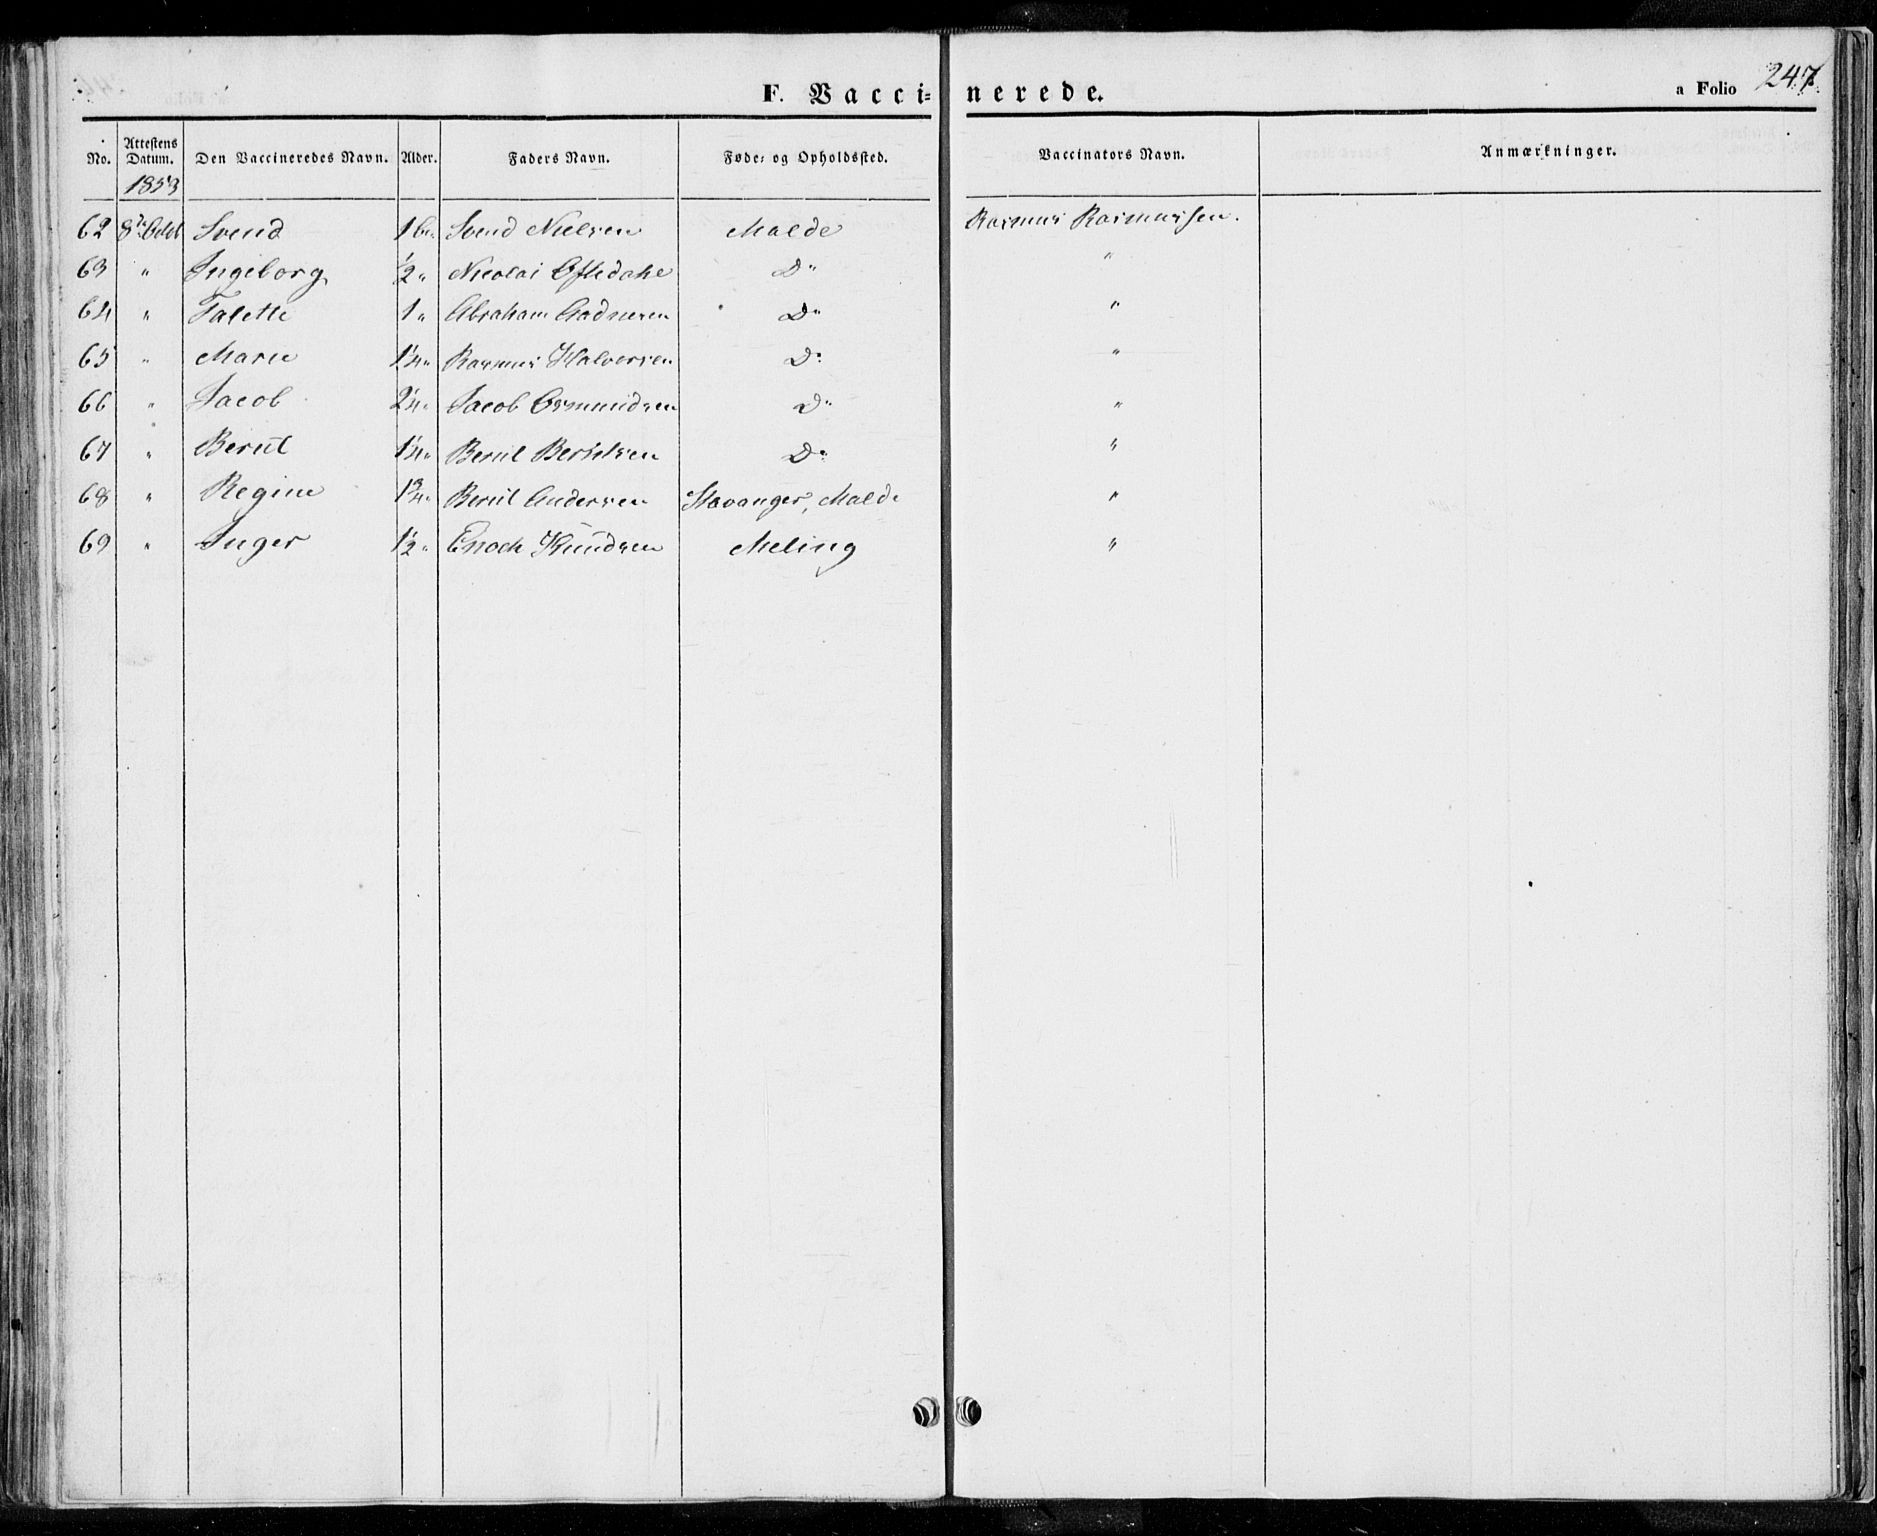 F. Vacci=nerede.
a Folio 247.
No. Attestens Datum. Den Vaccineredes Navn. Alder. Faders Navn. Føde= og Opholdssted. Vaccinators Navn. Anmærkninger.
1853
62 8de Octbr Svend 1 Svend Nielsen Malde Rasmus Rasmussen.
63 " Ingeborg ½ " Nicolai Oftedahl Do "
64 " Talette 1 " Abraham Do "
65 " Marie 1¼ " Rasmus Halvorsen Do "
66 " Jacob 2¼ " Jacob Osmundsen Do "
67 " Berut 1¼ " Berut Berutsen Do "
68 " Regine 1¾ " Berut Andersen Stavanger, Malde "
69 " Inger 1½ " Enoch Knudsen Meling "